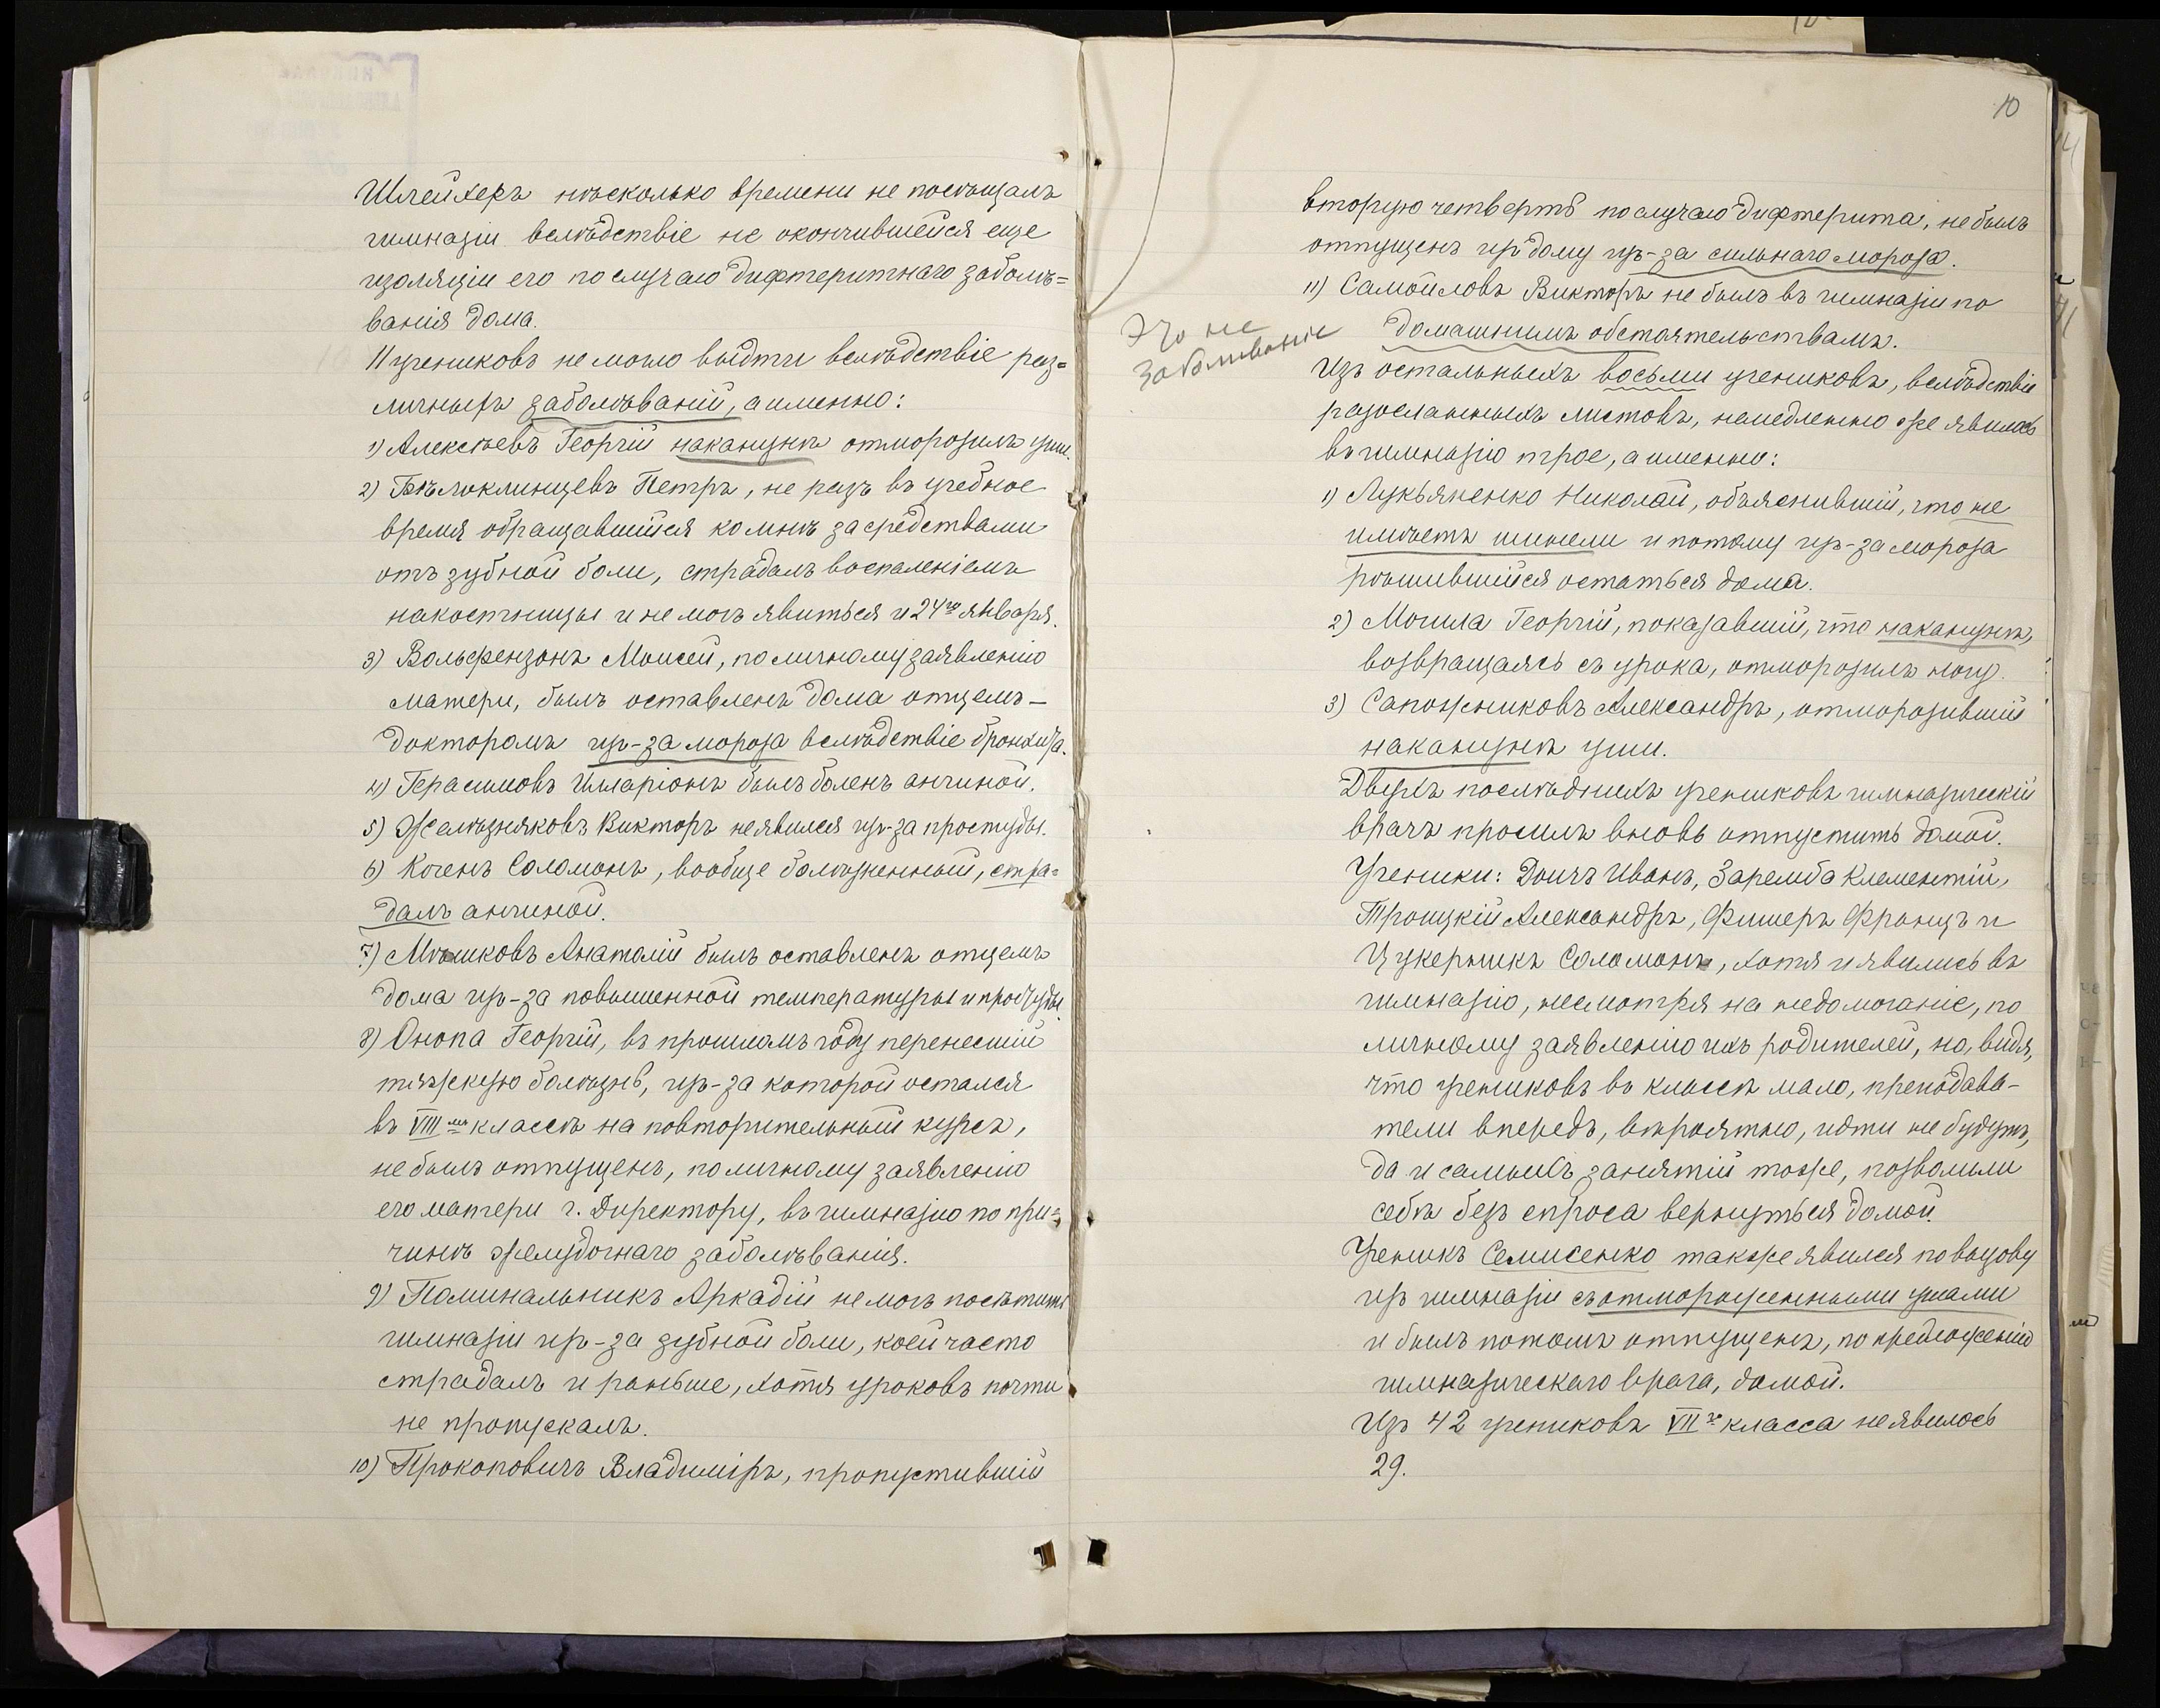 Шлейхеръ нѣсколько времени не посѣщалъ
гимназіи вслѣдствіе не окончившейся еще
изоляціи его по случаю дифтеритнаго заболѣ=
ванія дома.
11 учениковъ не могло выдти вслѣдствіе раз=
личныхъ заболѣваній, а именно:
1) Алексѣевъ Георгій наканунѣ отморозилъ уши.
2) Бѣлоклинцевъ Петръ, не разъ въ учебное
время обращавшійся ко мнѣ за средствами
отъ зубной боли, страдалъ воспаленіемъ
накостницы и не могъ явиться и 24го января.
3) Вольфензонъ Моисей, по личному заявленію
матери, былъ оставленъ дома отцемъ –
докторомъ изъ-за мороза вслѣдствіе бронхита.
4) Герасимовъ Иларіонъ былъ боленъ ангиной.
5) Желѣзняковъ Викторъ не явился изъ-за простуды.
6) Когенъ Соломонъ, вообще болѣзненный, стра=
далъ ангиной.
7) Мѣшковъ Анатолій былъ оставленъ отцемъ
дома изъ-за повышенной температуры и простуды.
8) Онопа Георгій, въ прошломъ году перенесшій
тяжкую болѣзнь, изъ-за которой остался
въ VIII мъ классѣ на повторительный курсъ,
не былъ отпущенъ, по личному заявленію
его матери г. Директору, въ гимназію по при=
чинѣ желудочнаго заболѣванія.
9) Поминальникъ Аркадій не могъ посѣтить
гимназіи изъ-за зубной боли, коей часто
страдалъ и раньше, хотя уроковъ почти
не пропускалъ.
10) Прокоповичъ Владиміръ, пропустившій
10
вторую четверть по случаю дифтерита, не былъ
отпущенъ изъ дому изъ-за сильнаго мороза.
11) Самойловъ Викторъ не былъ въ гимназіи по
домашнимъ обстоятельствамъ.
Это не
заболеваніе
Изъ остальныхъ восьми учениковъ, вслѣдствіе
разосланныхъ листовъ, немедленно же явилось
въ гимназію трое, а именно:
1) Лукьяненко Николай, объяснившій, что не
имѣетъ шинели и потому изъ-за мороза
рѣшившійся остаться дома.
2) Могила Георгій, показавшій, что наканунѣ,
возвращаясь съ урока, отморозилъ ногу.
3) Сапожниковъ Александръ, отморозившій
наканунѣ уши.
Двухъ послѣднихъ учениковъ гимназическій
врачъ просилъ вновь отпустить домой.
Ученики: Доичъ Иванъ, Заремба Клементій,
Троицкій Александръ, Фишеръ Францъ и
Цукерникъ Соломонъ, хотя и явились въ
гимназію, несмотря на недомоганіе, по
личному заявленію ихъ родителей, но, видя,
что учениковъ въ классѣ мало, преподава-
тели впередъ, вѣроятно, идти не будутъ,
да и самыхъ занятій тоже, позволили
себѣ безъ спроса вернуться домой.
Ученикъ Семисенко также явился по вызову
изъ гимназіи съ отмороженными ушами
и былъ потомъ отпущенъ, по предложенію
гимназическаго врача, домой.
Изъ 42 учениковъ VII го класса не явилось
29.